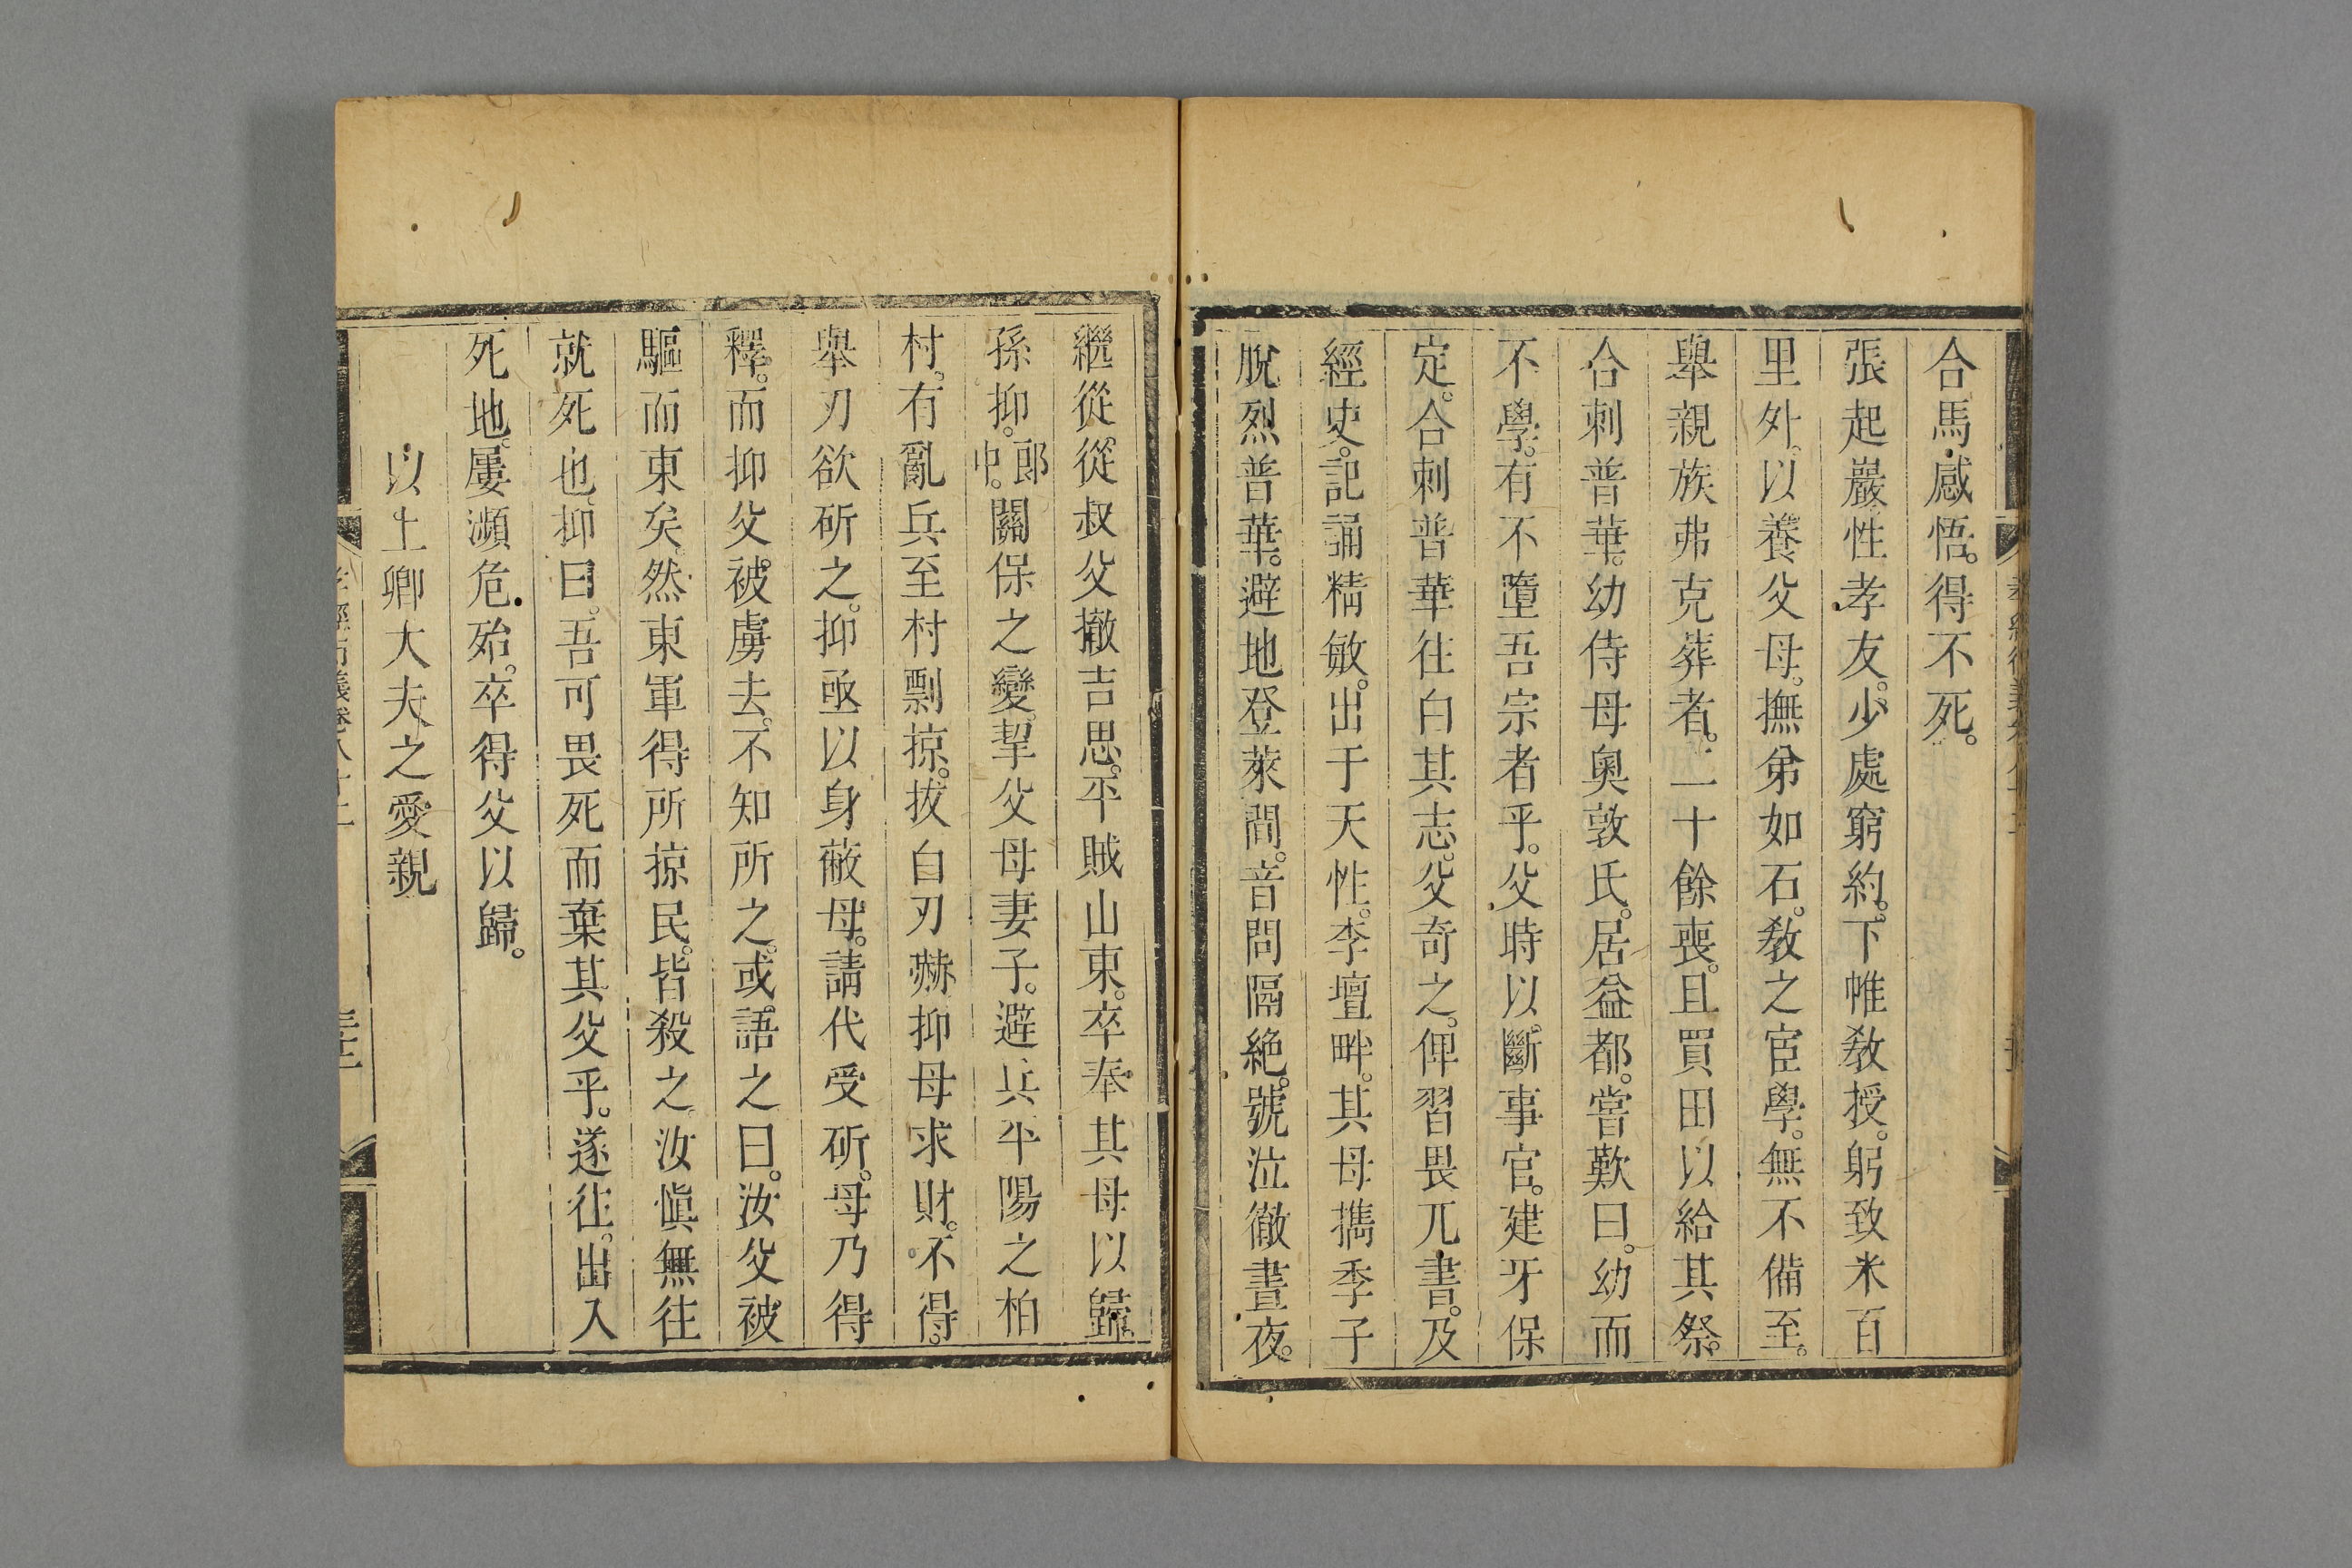 合馬感悟。得不死。
張起巖性孝友。少處窮約。下帷敎授。躬致米百
里外。以養父母。撫弟如石。敎之宦學。無不備至。
舉親族弗克葬者。二十餘喪。且買田以給其祭。
合刺普華。幼侍母奧敦氏。居益都。嘗歎曰。幼而
不學。有不墮吾宗者乎。父時以斷事官。建牙保
定。合刺普華往白其志。父奇之。俾習畏兀書。及
經史。記誦精敏。出于天性。李壇畔。其母擕季子
脫烈普華。避地登萊間。音問隔絶。號泣徹晝夜。
繼從從叔父撤吉思。平賊山東。卒奉其母以歸。
孫抑。郎中。關保之變。挈父母妻子。避兵平陽之柏
村。有亂兵至村剽掠。拔白刃赫抑母求財。不得。
舉刃欲斫之。抑亟以身蔽母。請代受斫。母乃得
釋。而抑父被虜去。不知所之。或語之曰。汝父被
驅而東矣。然東軍得所掠民。皆殺之。汝愼無往
就死也。抑曰。吾可畏死而棄其父乎。遂往。出入
死地。屢瀕危殆。卒得父以歸。
以上卿大夫之愛親